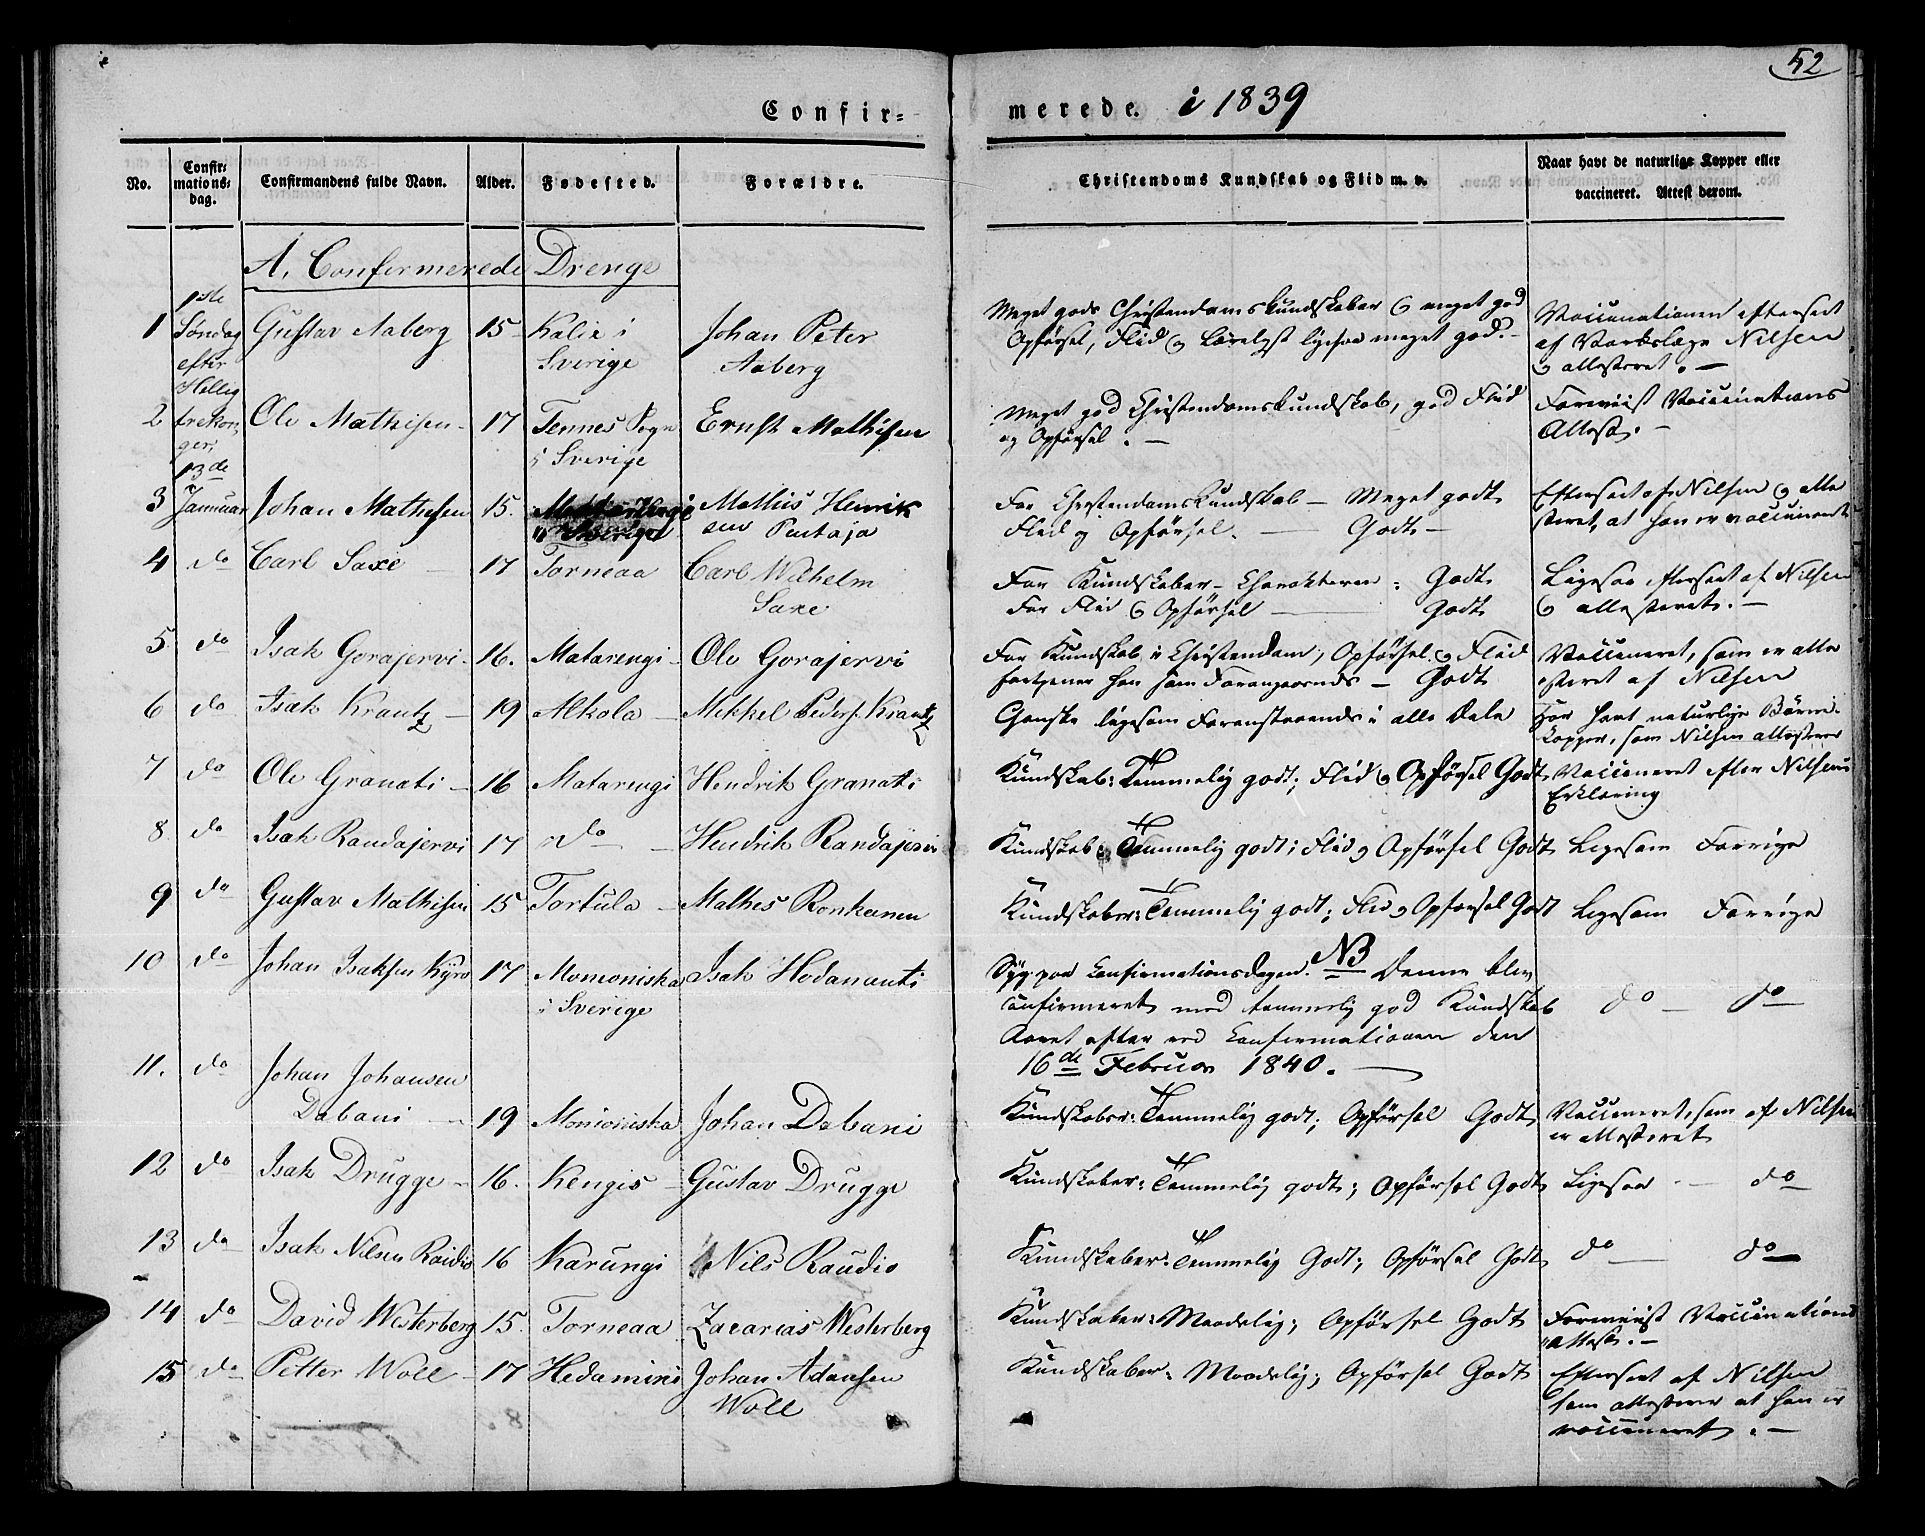 52
Confir=
merede. i 1839
No.
Confir=
mations=
dag.
Confirmandens fulde Navn.
Alder.
Fødested.
Forældre.
Christendoms Kundskab og Flid m. v.
Naar havt de naturlige Kopper eller
vaccineret. Attest derom.
A. Confirmerede Drenge
1ste
1 Søndag Gustav Aaberg 15 Kalix i Johan Peter
efter Sverige Aaberg
Hellig
Meget gode Christendomskundskaber og meget god
Opførsel, Flid og Lærelyst ligesaa meget god.
Vaccinationen efterseet
af Værkslæge Nilsen
og attesteret. —
2 trekon= Ole Mathisen 17 Tennes Sogn Ernst Mathisen
ger, i Sverige
13de
Meget god Christendomskundskab, god Flid
og Opførsel. —
Foreviist Vaccinations
Attest. —
3 Januar Johan Mathisen 15. Mathis Henrik
sen Pentaja
For Christendomskundskab — Meget godt
Flid og Opførsel. — Godt —
Efterseet af Nilsen og atte
steret, at han er vaccineret
4 do Carl Saxe 17 Torneaa Carl Wilhelm
Saxe
For Kundskaber — Charakteren: Godt
For Flid og Opførsel — Godt
Ligesaa efterseet af Nilsen
og attesteret. —
5 do Isak Gorajervi 16. Matarengi Ole Gorajervi
For Kundskab i Christendom, Opførsel og Flid
fortjener han som Foregaaende — Godt
Vaccineret, som er atte
steret af Nilsen
6 do Isak Krantz 19 Alkola Mikkel Peders. Krantz
Ganske ligesom Foranstaaende i alle Dele
Har havt naturlige Børne=
kopper, som Nilsen attesterer
7 do Ole Granati 16 Matarengi Hendrik Granati
Kundskab: Temmelig godt; Flid og Opførsel Godt
Vaccineret efter Nilsens
Erklæring
8 do Isak Randajervi 17 do Hendrik Randajervi
Kundskab: Temmelig godt; Flid og Opførsel Godt
Ligesom Forrige
9 do Gustav Mathisen 15 Tortula Mathes Ronkanen
Kundskaber: Temmelig godt; Flid og Opførsel Godt
Ligesom Forrige
10 do Johan Isaksen Kyrø 17 Momoniska Isak Hodananti
i Sverige
Syg paa Confirmationsdagen. NB Denne blev
confirmeret med temmelig god Kundskab
Aaret efter ved Confirmationen den
16de Februar 1840. —
do — do
11. do Johan Johansen
Dabani 19 Monioniska Johan Dabani
Kundskaber: Temmelig godt; Opførsel Godt
Vaccineret, som af Nilsen
er attesteret
12 do Isak Drugge 16. Kengis Gustav Drugge
Kundskaber: Temmelig godt; Opførsel Godt
Ligesaa — do
13 do Isak Nilsen Raudio 16 Karungi Nils Raudio
Kundskaber: Temmelig Godt; Opførsel Godt
do — do
14 do David Westerberg 15. Torneaa Zacarias Westerberg
Kundskaber: Maadelig; Opførsel Godt
Foreviist Vaccinations
attest. —
15 do Petter Woll 17 Hedamini Johan Adamsen
Woll
Kundskaber: Maadelig; Opførsel Godt
Efterseet af Nilsen
som attesterer at han er
vaccineret. —